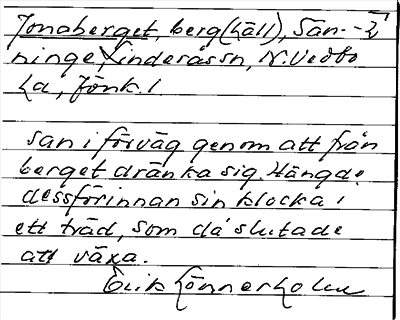 Jonaberget, berg (häll), San-
ninge, Linderåssn, N. Vedbo
hd, Jönk. l
san i förväg genom att från
berget dränka sig. Hängde
dessförinnan sin klocka i
ett träd, som då slutade
att växa.
Erik Lönnerholm